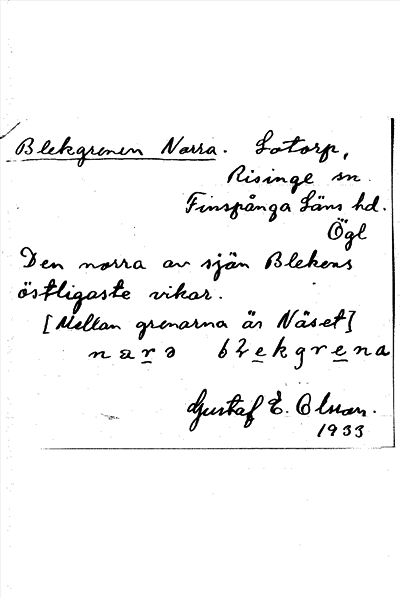 Blekgrenen Norra. Lotorp,
Risinge sn.
Finspånga Läns hd.
Ögl
Den norra av sjön Blekens
östligaste vikar.
[Mellan grenarna är Näset]
nara blekgrena
Gustaf E. Olsson.
1933